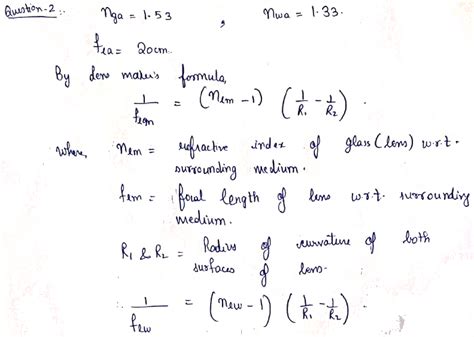 Question-2:- nga = 1.53 , nwa = 1.33.
fea = 20cm.
By lens maker's formula,
1/fem = (nem - 1) (1/R1 - 1/R2).
where, nem = refractive index of glass(lens) w.r.t. surrounding medium.
fem = focal length of lens w.r.t. surrounding medium.
R1 & R2 = Radius of curvature of both surfaces of lens.
∴ 1/few = (new - 1) (1/R1 - 1/R2)